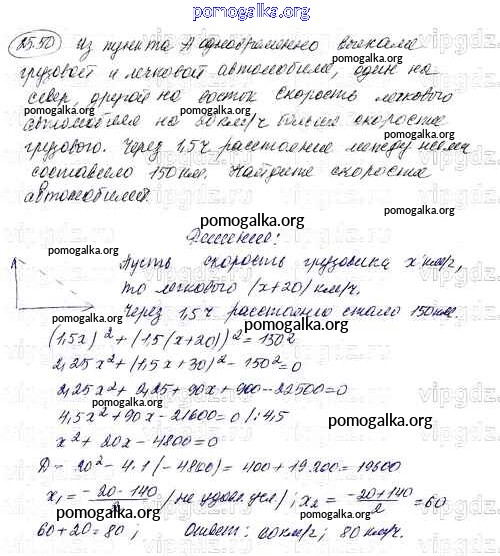 pomogalka.org
25.50 Из пункта А одновременно выехали
грузовой и легковой автомобили, один на
север, другой на восток скорость легкового
автомобиля на 20 км/ч больше скорости
грузового. Через 1,5 ч расстояние между ними
составляло 150 км. Найдите скорости
автомобилей.
Решение:
Пусть скорость грузовика x км/ч,
то легкового (x+20) км/ч.
Через 1,5 ч расстояние стало 150 км.
(1,5x)² + (1,5(x+20))² = 150²
2,25x² + (1,5x+30)² - 150² = 0
2,25x² + 2,25 + 90x + 900 - 22500 = 0
4,5x² + 90x - 21600 = 0 /: 4,5
x² + 20x - 4800 = 0
D = 20² - 4·1(-4800) = 400 + 19200 = 19600
x₁ = -20-140/2 (не удов. усл); x₂ = -20+140/2 = 60
60+20=80; Ответ: 60 км/ч; 80 км/ч.
pomogalka.org